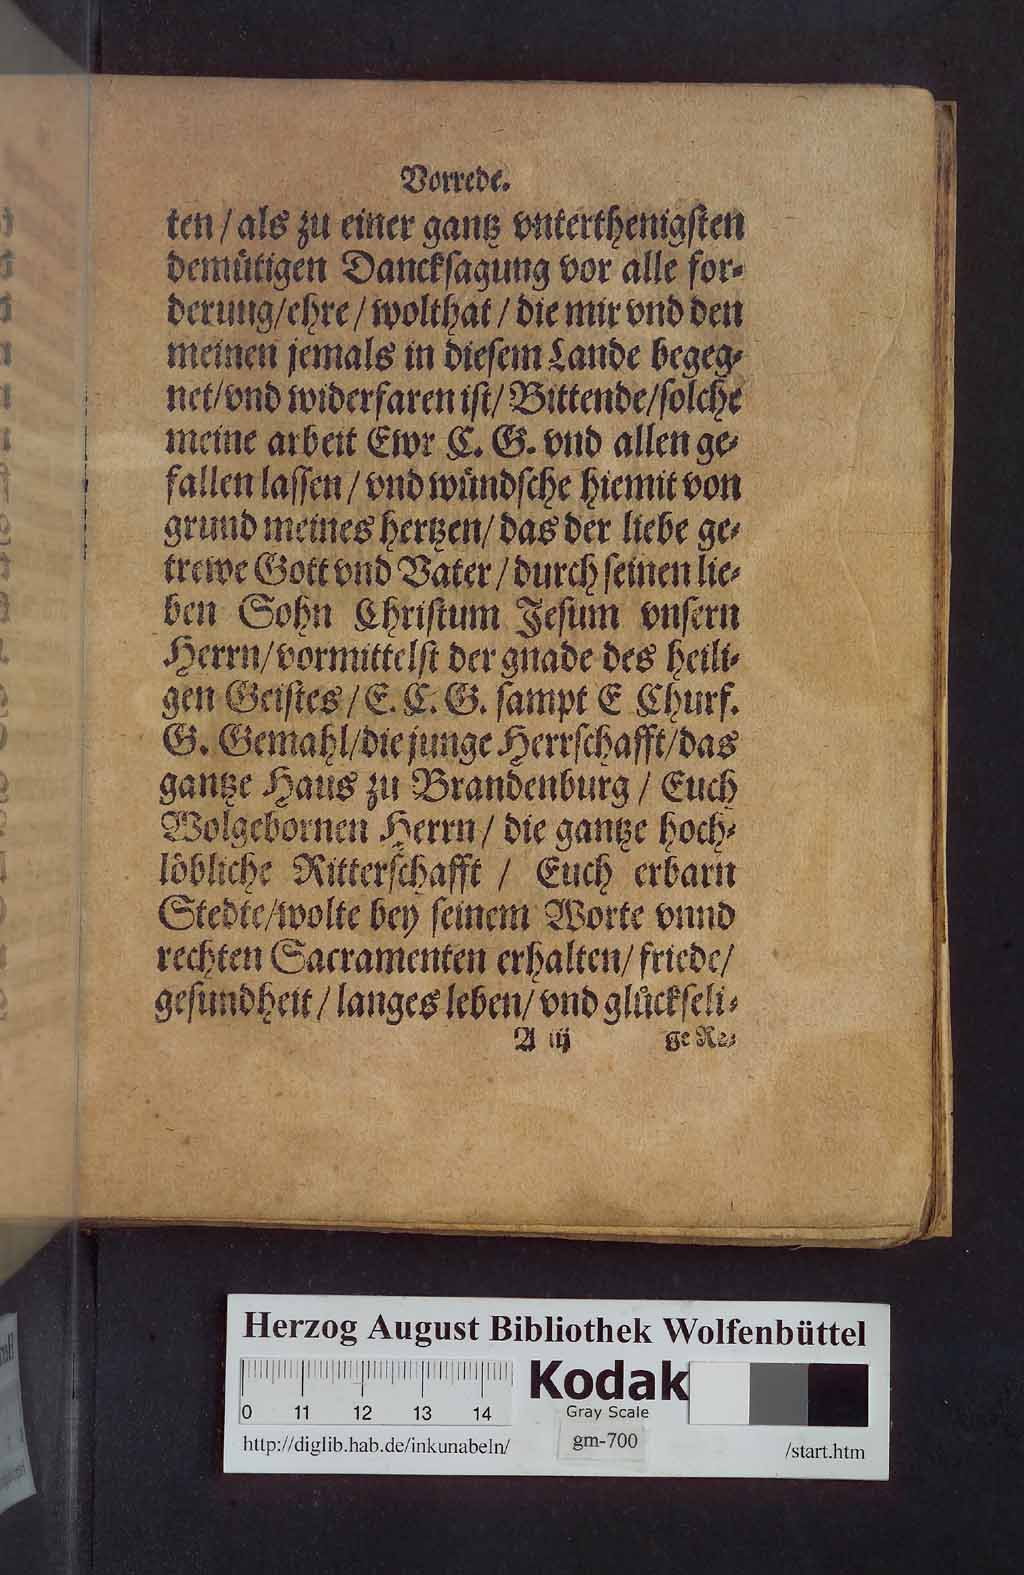 Vorrede.
ten / als zu einer gantz vnterthenigsten
demütigen Dancksagung vor alle for-
derung/ehre / wolthat / die mir vnd den
meinen jemals in diesem Lande begeg-
net/vnd widerfaren ist/ Bittende/solche
meine arbeit Ewr C. G. vnd allen ge-
fallen lassen / vnd wündsche hiemit von
grund meines hertzen/ das der liebe ge-
trewe Gott vnd Vater / durch seinen lie-
ben Sohn Christum Jesum vnsern
Herrn/vormittelst der gnade des heili-
gen Geistes / E. C. G. sampt E Churf.
G. Gemahl/die junge Herrschafft/das
gantze Haus zu Brandenburg / Euch
Wolgebornen Herrn/ die gantze hoch-
löbliche Ritterschafft / Euch erbarn
Stedte/wolte bey seinem Worte vnnd
rechten Sacramenten erhalten/ friede/
gesundheit / langes leben/ vnd glückseli-
A iij ge Re-
Herzog August Bibliothek Wolfenbüttel
0 11 12 13 14
Kodak
Gray Scale
http://diglib.hab.de/inkunabeln/ gm-700 /start.htm